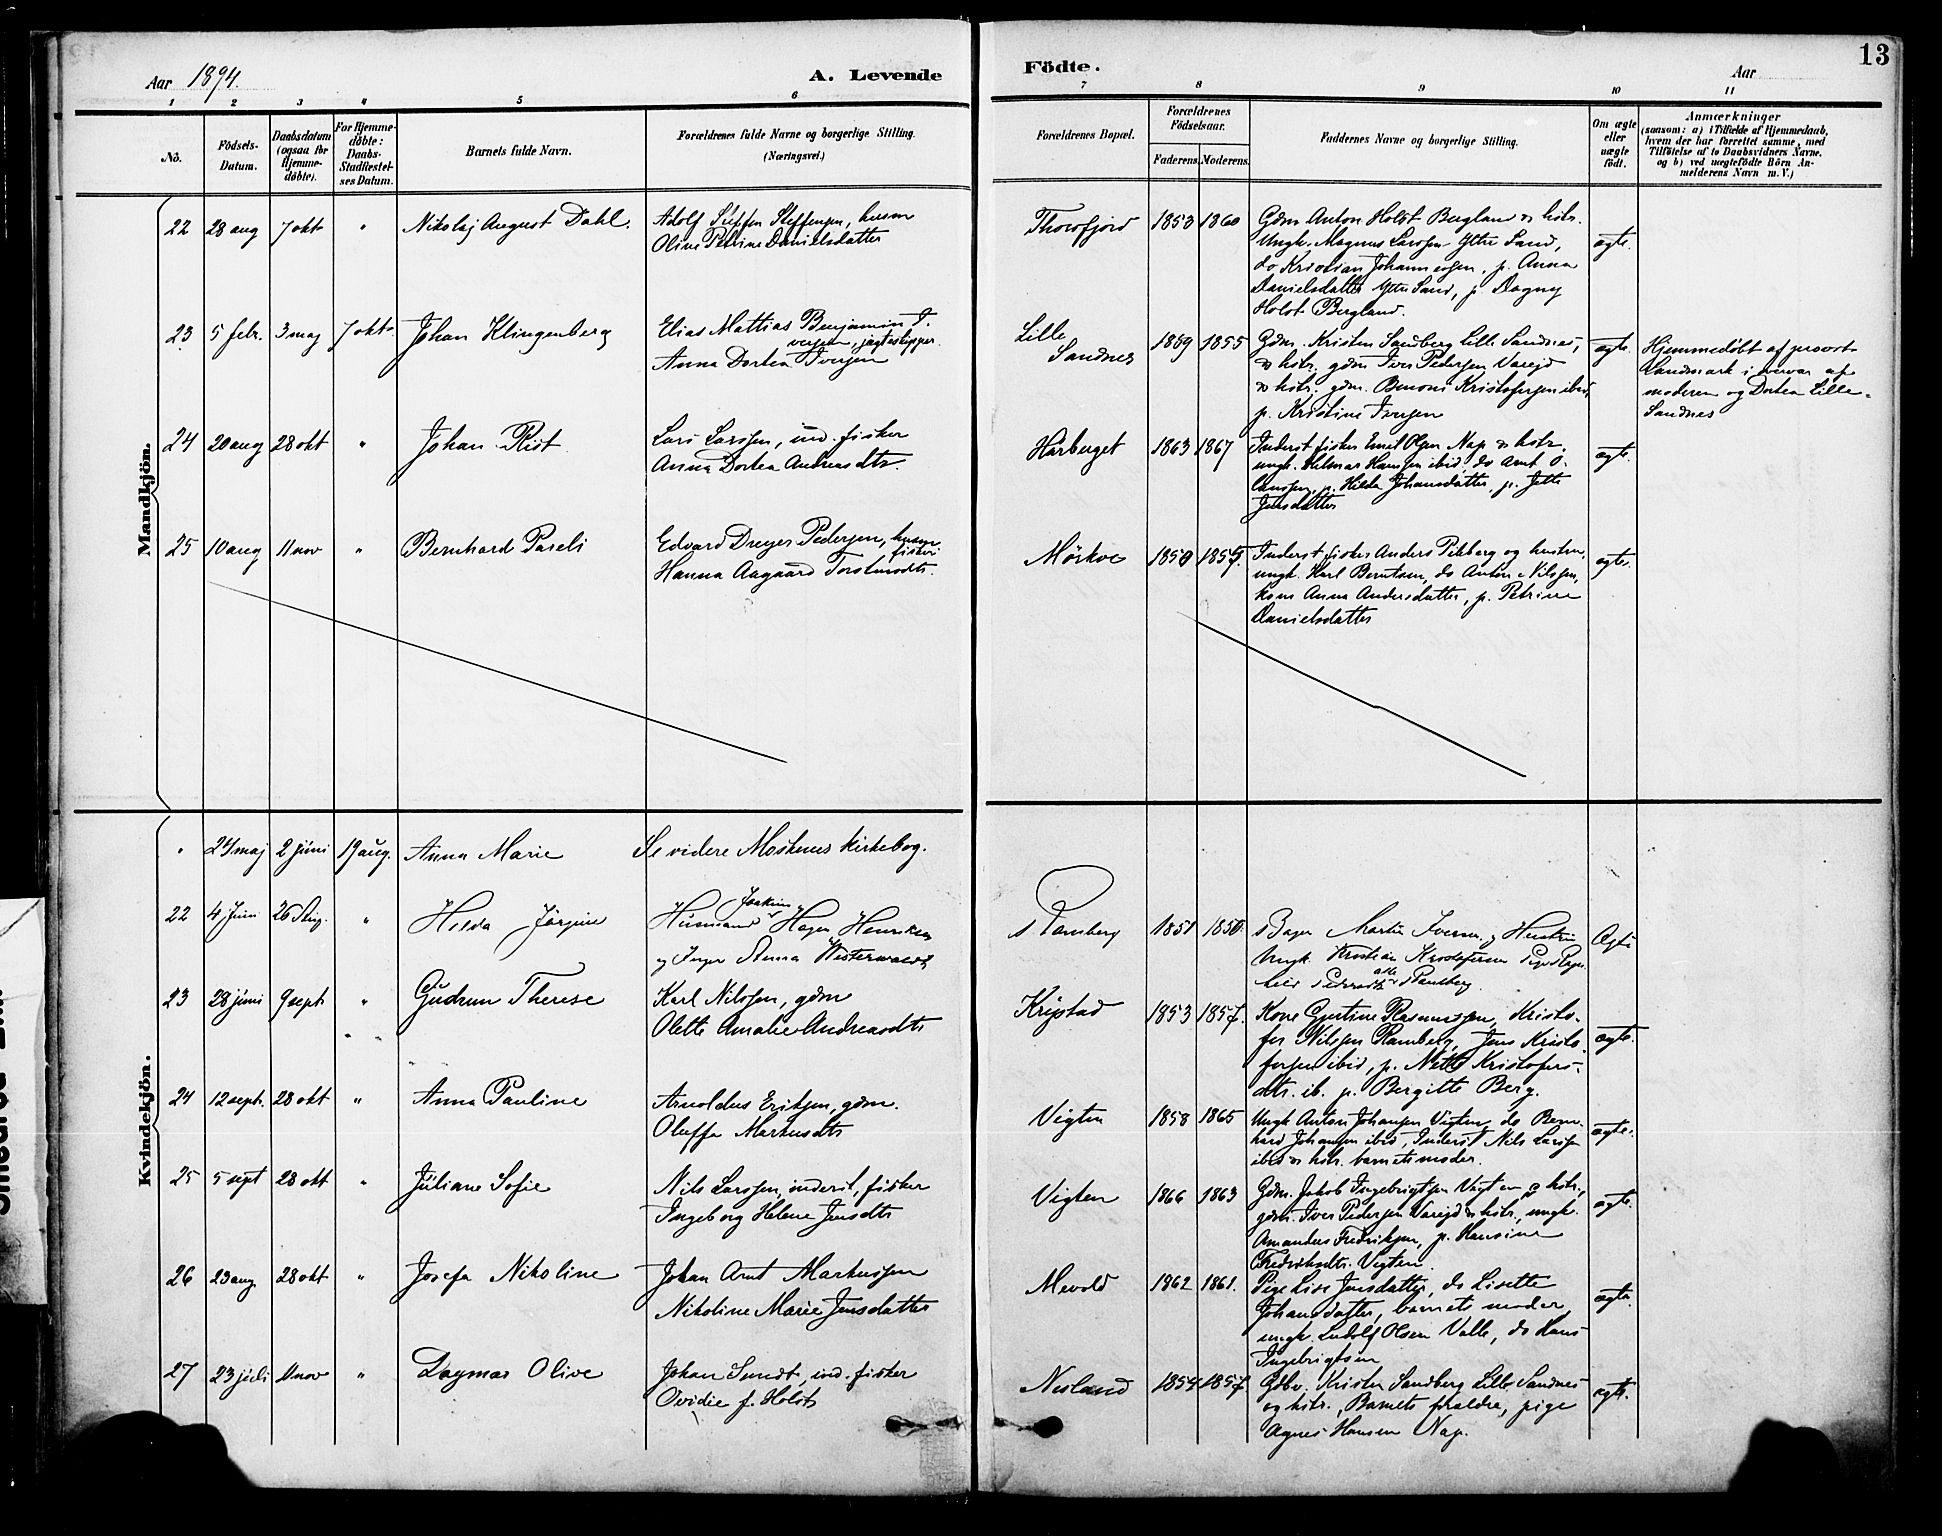 13
Aar 1894.
A. Levende
Födte.
Aar
1 2 3 4 5 6 7 8 9 10 11
No.
Födsels-
Datum.
Daabsdatum
(ogsaa for
Hjemme-
døbte).
For Hjemme-
døbte:
Daabs-
Stadfæstel-
ses Datum.
Barnets fulde Navn.
Forældrenes fulde Navne og borgerlige Stilling.
(Næringsvei.)
Forældrenes Bopæl.
Forældrenes
Födselsaar.
Faderens. Moderens.
Faddernes Navne og borgerlige Stilling.
Om ægte
eller
uægte
født.
Anmærkninger
(saasom: a) i Tilfælde af Hjemmedaab,
hvem der har forrettet samme, med
Tilføielse af to Daabsvidners Navne,
og b) ved uægtefødte Börn An-
melderens Navn m. V.)
Mandkjön.
22 28 aug 7 okt " Nikolaj August Dahl.
Adolf Steffen Steffensen, husm
Olive Petrine Danielsdatter
Thorsfjord 1853 1860
Gdm Anton Holst Bergland & hstr.
Ungk. Magnus Larssen Ytre Sand,
do Kristian Johannessen, p. Anna
Danielsdatter Ytre Sand, p. Dagny
Holst Bergland.
ægte.
23 5 febr. 3 maj 7 okt. Johan Klingenberg
Elias Mattias Benjamin I-
versen, jagteskipper.
Anna Dortea Iversen
Lille
Sandnes
1859 1855
Gdm. Kristen Sandberg Lille Sandnes,
& hstr. gdm Iver Pedersen Vareid
& hstr. gdm. Benoni Kristofersen ibid,
p. Kristine Iversen
ægte.
Hjemmedøbt af provst
Landmark i nærvær af
moderen og Dortea Lille-
Sandnes
24 20 aug 28 okt " Johan Rist
Lars Larssen, ind. fisker
Anna Dortea Andreasdtr.
Hårberget 1863 1867
Inderst fisker Emil Olsen Nap & hstr.
ungk. Hilmar Hansen ibid, do Arnt O.
Hilda Johansdatter, p. Jette
Jensdatter
ægte.
25 10 aug 11 nov " Bernhard Paseli
Edvard Dreyer Pedersen, husm
fisker
Hanna Aagaard Torstensdtr.
Mörkve 1850 1857.
Inderst fisker Anders Pikberg og hustru,
ungk. Karl Berntsen, do Anton Nilssen,
kone Anna Andersdatter, p. Petrine
Danielsdatter
ægte.
Kvindekjön.
" 24 maj 2 juni 19 aug. Anna Marie Se videre Moskenes kirkebog.
22 4 Juni 26 Aug. " Hilda Jørgine
Joakim
Husmand Hagen Henriksen
og Inger Anna Westerwaldt
Ramberg 1851 1850.
Martin Iversen og Hustru
Ungk. Kristian Kristofersen Pige
alle Ramberg.
Ægte
23 28 juni 9 sept " Gudrun Therese
Karl Nilssen, gdm
Olette Amalie Andreasdtr
Krystad 1853 1857.
Kone Gjertine Rasmussen, Kristo-
fer Nilssen Ramberg, Jens Kristo-
fersen ibid, p. Nille Kristofers-
dtr. ib. p. Bergitte Berg.
ægte.
24 12 sept. 28 okt " Anna Pauline
Arnoldus Eriksen, gdm.
Oluffa Markusdtr
Vigten 1858 1865
Ungk Anton Johansen Vigten, do Bern-
hard Johansen ibid, Inderst Nils Larssen
ibid & hstr. barnets moder.
ægte.
25 5 sept 28 okt " Juliane Sofie
Nils Larssen, inderst, fisker
Ingeborg Helene Jensdtr
Vigten 1866 1863
Gdm. Jakob Ingebrigtsen Vigten & hstr.,
gdm. Iver Pedersen Vareid & hstr., ungk.
Amandus Fredriksen, p. Hansine
Fredriksdtr. Vigten.
ægte.
26 23 aug 28 okt " Josefa Nikoline
Johan Arnt Markussen
Nikoline Marie Jensdatter
Mevold 1862 1861.
Pige Lise Jensdatter, do Lisette
Johansdatter, barnets moder
ungk. Ludolf Olsen Valle, do Hans
Ingebrigtsen
ægte.
27 23 juli 11 nov " Dagmar Olive
Johan Sundt, ind. fisker
Ovidie f. Holst
Nesland 1854 1857
Gdbr. Krister Sandberg Lille Sandnes
og hstr., Barnets forældre, pige
Agnes Hansen Nap.
ægte.